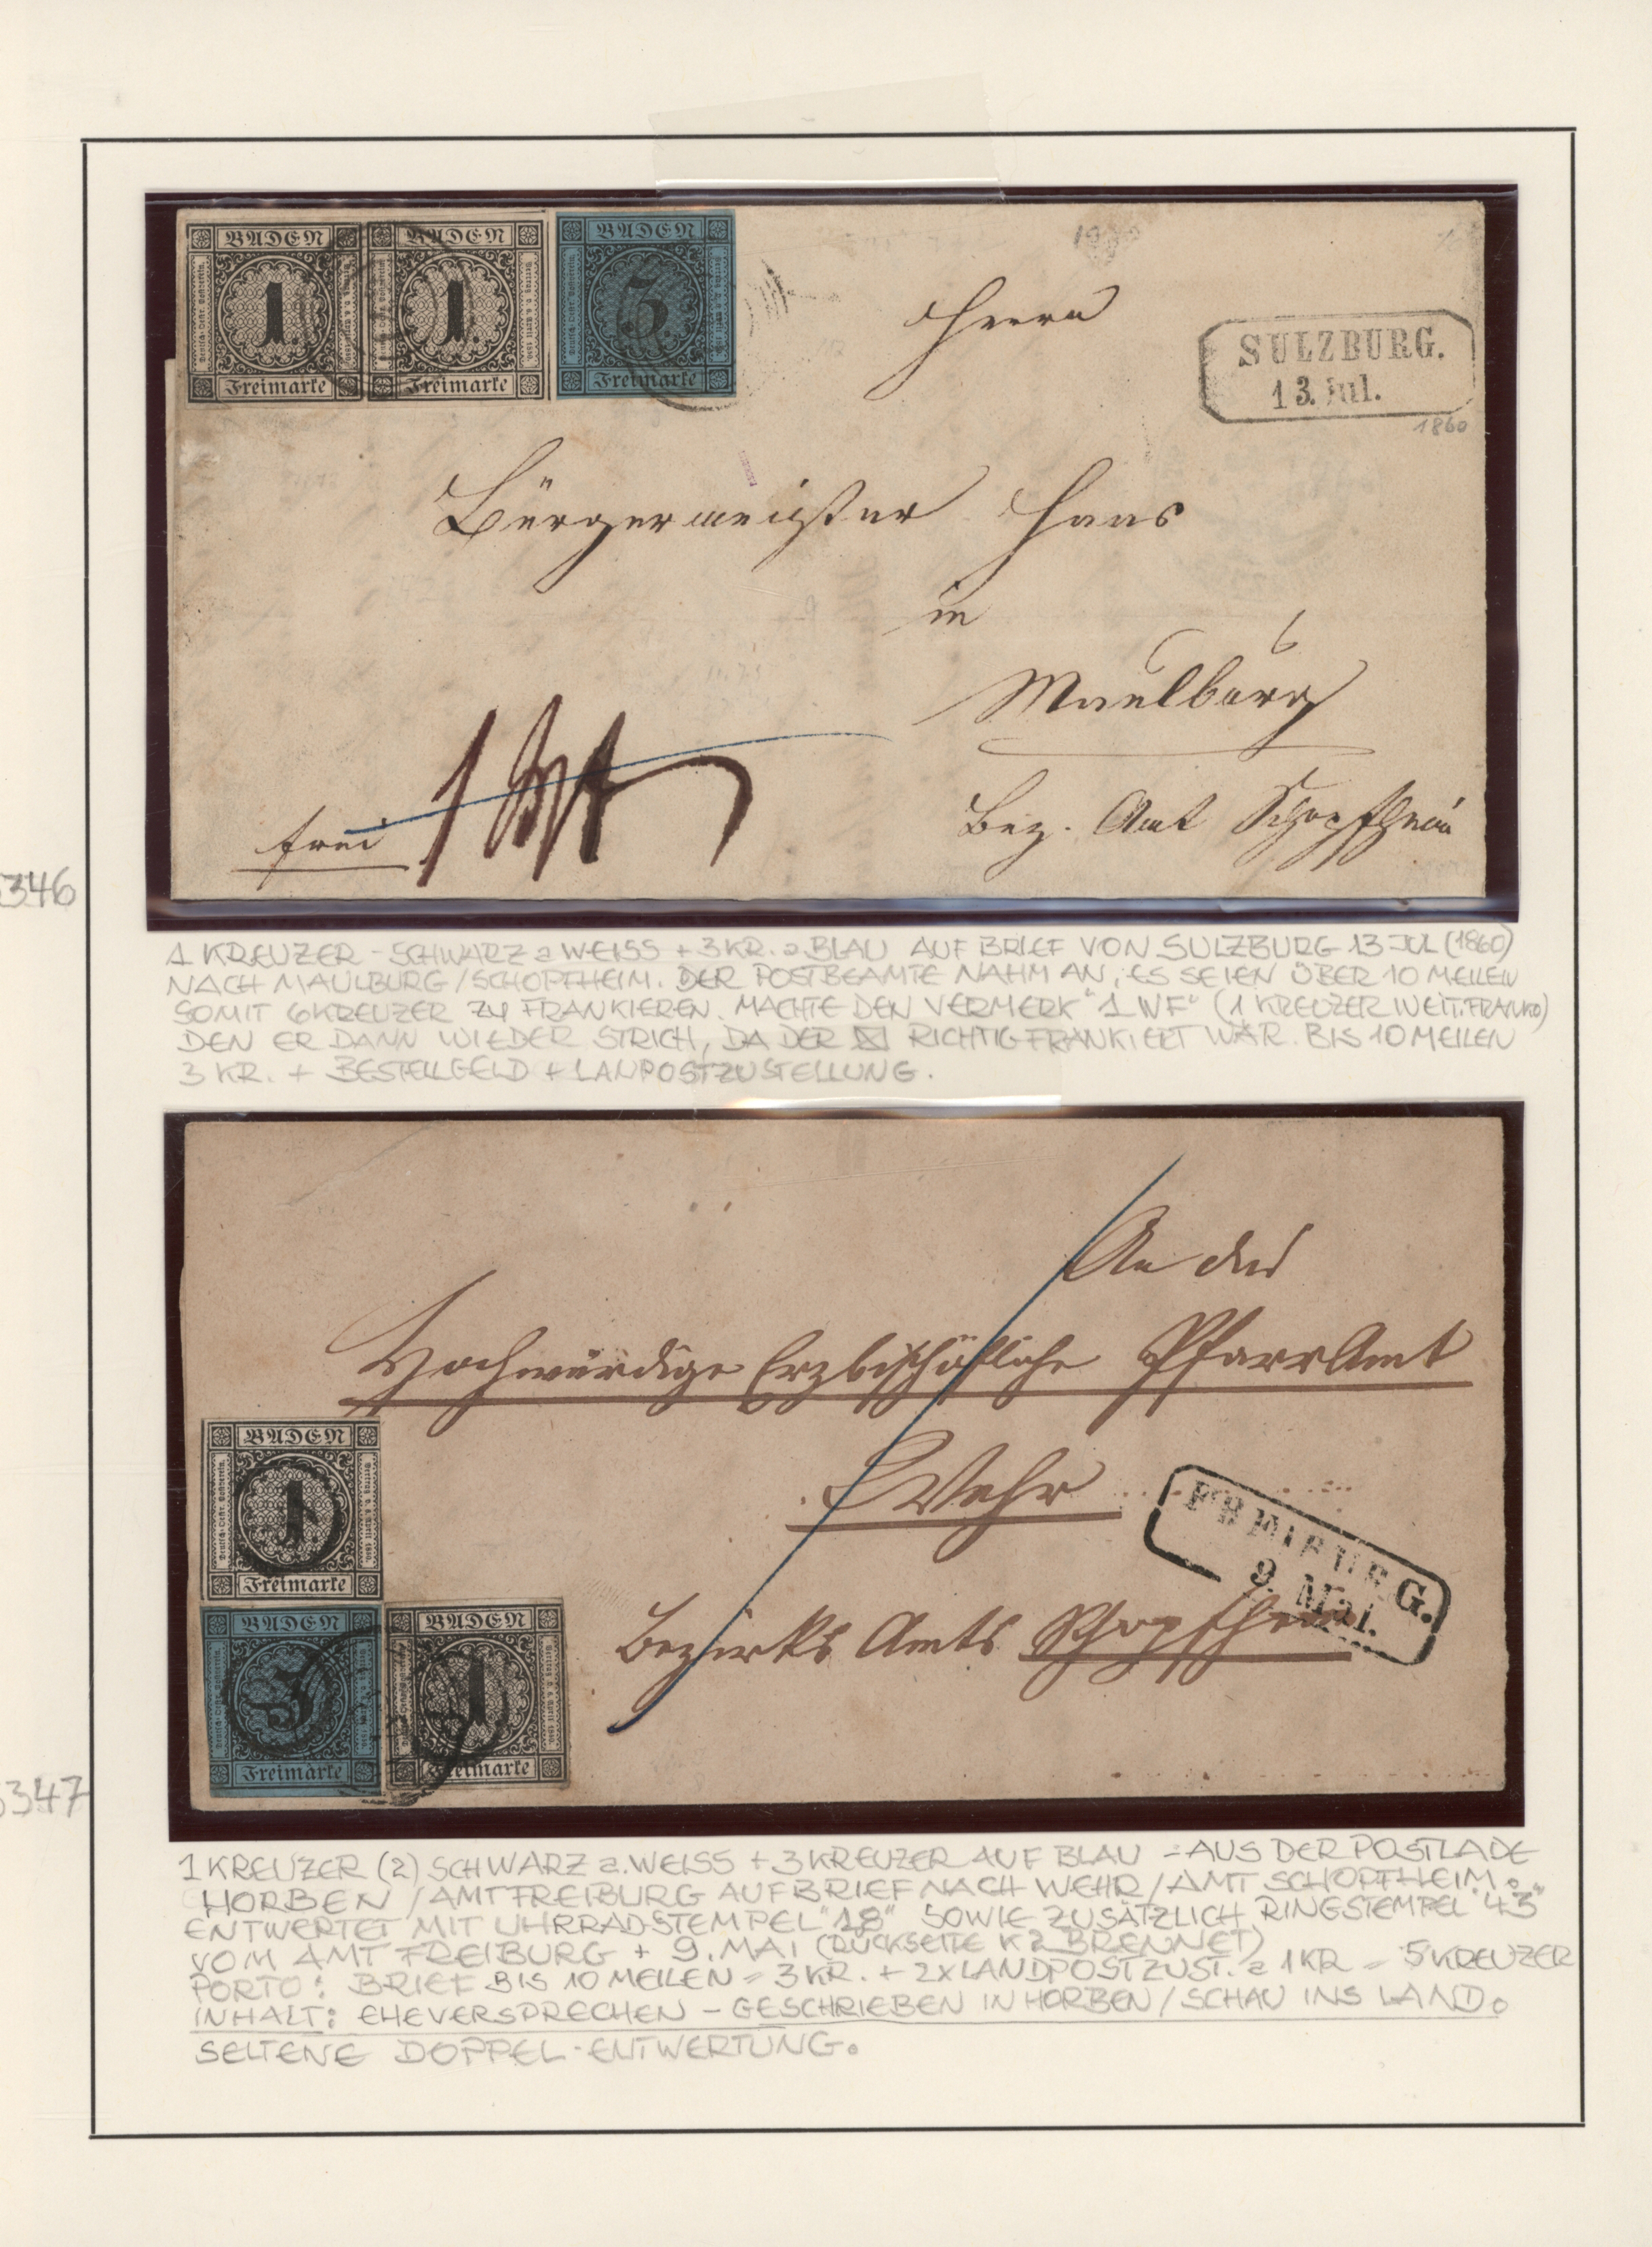 BADEN BADEN BADEN
1. 1. 3.
Freimarke Freimarke Freimarke
Herrn
SULZBURG.
13. Jul.
1860
Bürgermeister Haas
in
Maulburg
6
Bez. Amt Schopfheim
frei
346
1 KREUZER - SCHWARZ a WEISS + 3 KR. a BLAU AUF BRIEF VON SULZBURG 13 JUL (1860)
NACH MAULBURG/SCHOPFHEIM. DER POSTBEAMTE NAHM AN, ES SEIEN ÜBER 10 MEILEN
SOMIT 6 KREUZER ZU FRANKIEREN. MACHTE DEN VERMERK "1 WF" (1 KREUZER WEIT. FRANKO)
DEN ER DANN WIEDER STRICH, DA DER ✉ RICHTIG FRANKIERT WAR. BIS 10 MEILEN
3 KR. + BESTELLGELD + LANPOSTZUSTELLUNG.
An das
Hochwürdige Erzbischöfliche PfarrAmt
Wehr
FREIBURG.
9. Mai.
Bezirks Amts Schopfheim
BADEN
1
Freimarke
BADEN BADEN
3 1
Freimarke Freimarke
347
1 KREUZER (2) SCHWARZ a. WEISS + 3 KREUZER AUF BLAU = AUS DER POSTLADE
HORBEN / AMT FREIBURG AUF BRIEF NACH WEHR / AMT SCHOPFHEIM.
ENTWERTET MIT UHRRADSTEMPEL "18" SOWIE ZUSÄTZLICH RINGSTEMPEL "43"
VOM AMT FREIBURG + 9. MAI (RÜCKSEITE K2 BRENNET)
PORTO: BRIEF BIS 10 MEILEN = 3 KR. + 2X LANDPOSTZUST. a 1 KR = 5 KREUZER
INHALT: EHEVERSPRECHEN - GESCHRIEBEN IN HORBEN / SCHAU INS LAND.
SELTENE DOPPEL-ENTWERTUNG.